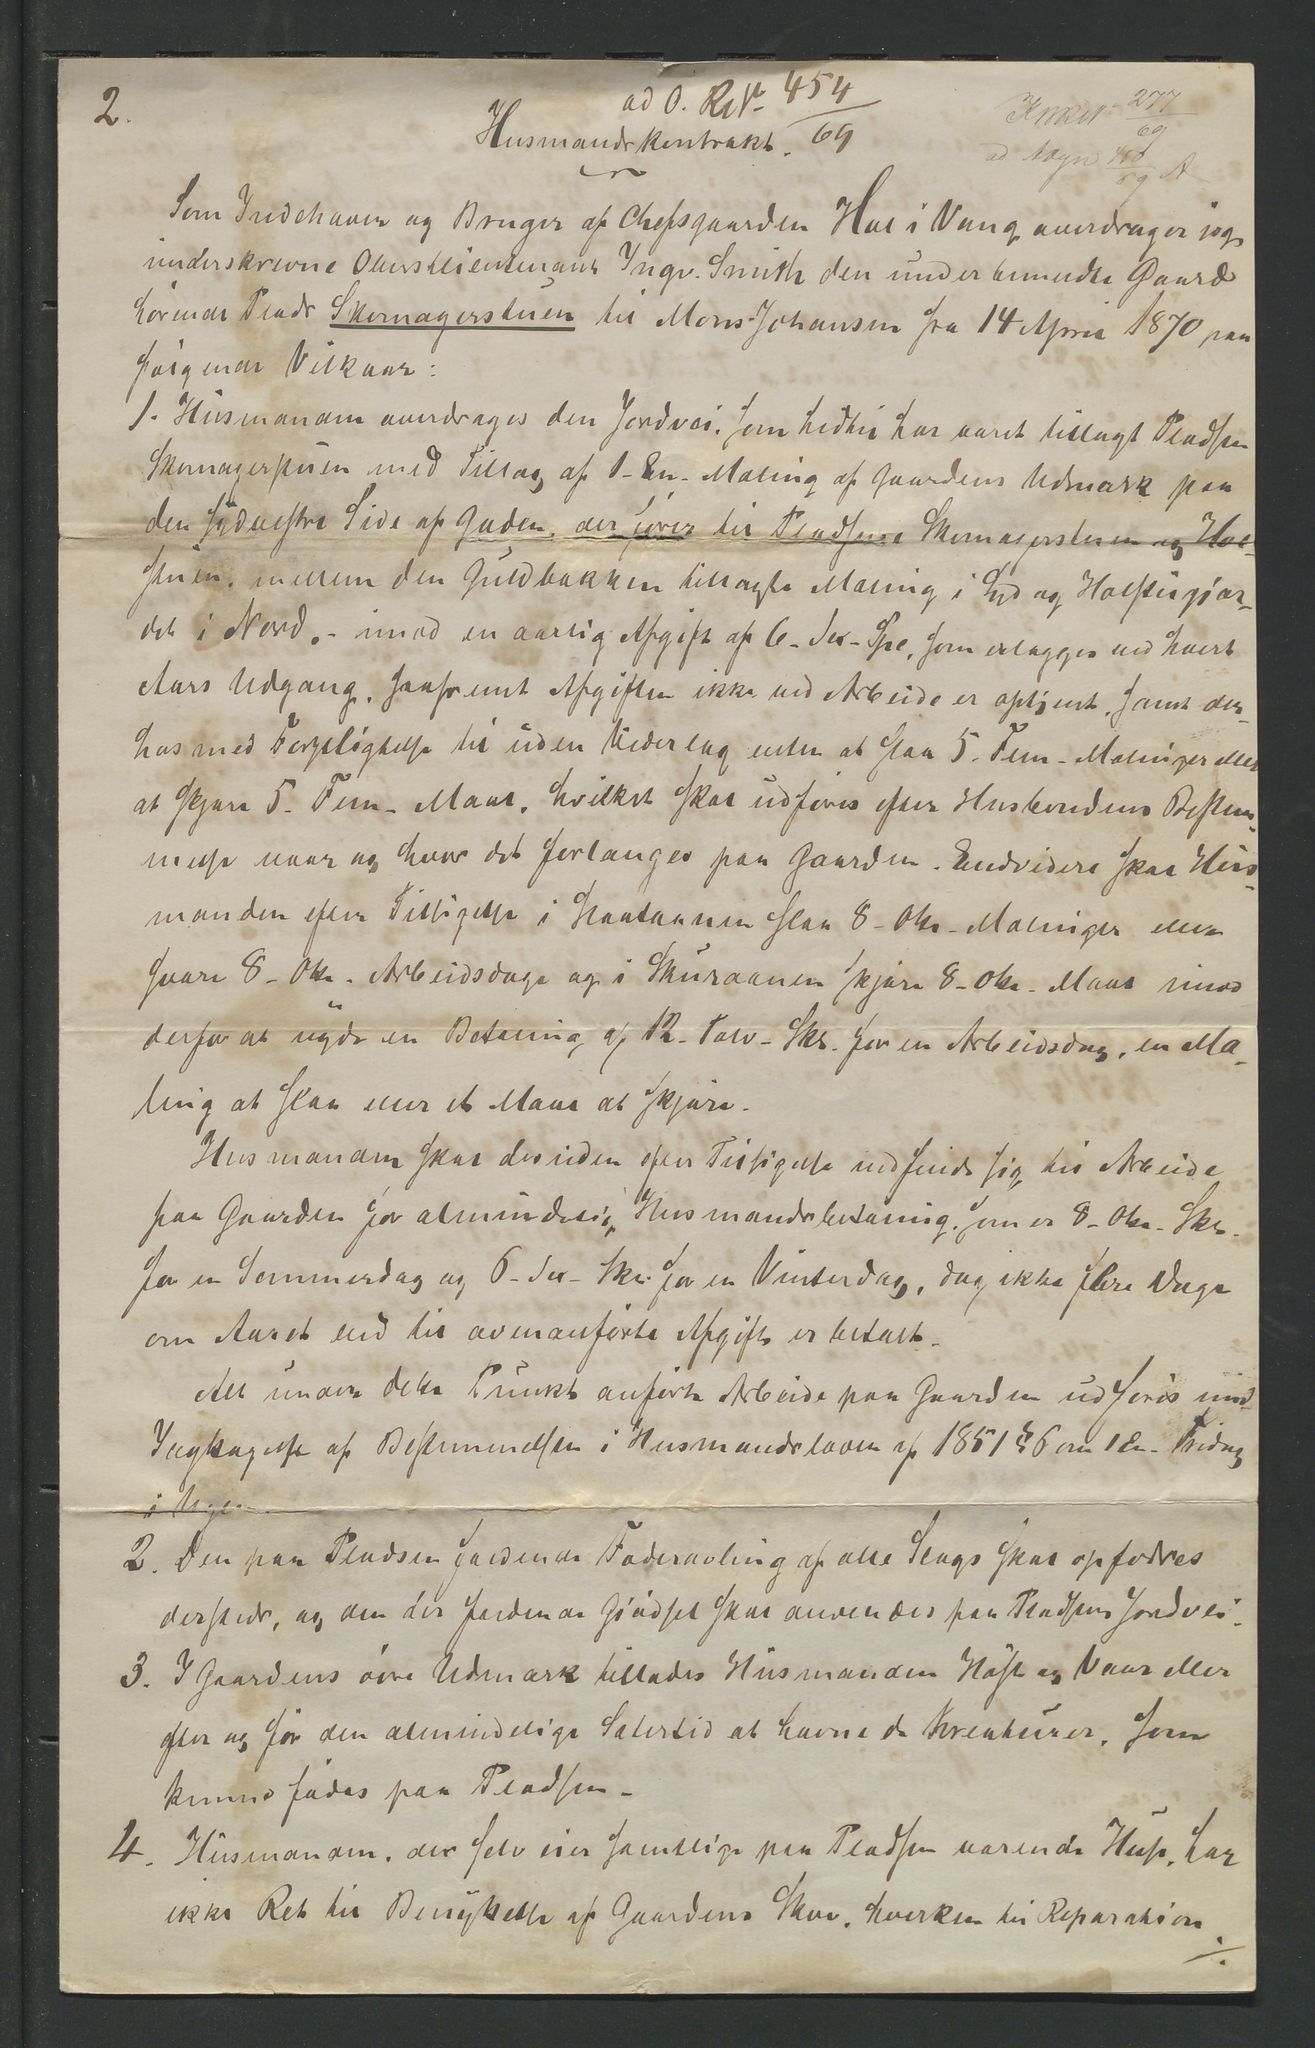 2.
ad O. Refr. 454/69
Husmandskontrakt.
277/69
ad
Som Indehaver og Bruger af Chefsgaarden Hol i Vang overdrager jeg
underskrevne Oberstlieutenant Ingv. Smith den under bemeldte Gaard
hørende Plads Skomagerstuen til Mons Johansen fra 14 April 1870 paa
følgende Vilkaar:
1. Husmanden overdrages den Jordvei, som hidtil har været tillagt Pladsen
Skomagerstuen med Tillæg af 1 - En - Maling af Gaardens Udmark paa
den sydvestre Side af Gaden, der fører til Pladsene Skomagerstuen og Hol-
stuen, mellem den Guldbakken tillagte Maling i Syd og Holstugjær-
det i Nord, - imod en aarlig Afgift af 6 - Sex - Spd, som erlægges ved hvert
Aars Udgang, saafremt Afgiften ikke ved Arbeide er optjent, samt der-
hos med Forpligtelse til uden Vederlag enten at slaa 5 - Fem - Malinger eller
at skjære 5 - Fem - Maal, hvilket skal udføres efter Husbondens Bestem-
melse naar og hvor det forlanges paa Gaarden. Endvidere skal Hus-
manden efter Tilsigelse i Slaataannen slaa 8 - Otte - Malinger eller
gjøre 8 - Otte - Arbeidsdage og i Skuraannen skjære 8 - Otte - Maal imod
derfor at nyde en Betaling af 12 - Tolv - Skl. for en Arbeidsdag, en Ma-
ling at slaa eller et Maal at skjære.
Husmanden skal desuden efter Tilsigelse indfinde sig til Arbeide
paa Gaarden for almindelig Husmandsbetaling, som er 8 - Otte - Skl.
for en Sommerdag og 6 - Sex - Skl. for en Vinterdag, dog ikke flere Dage
om Aaret end til ovenanførte Afgift er betalt.
Alt under dette Punkt anførte Arbeide paa Gaarden udføres med
Iagttagelse af Bestemmelsen i Husmandsloven af 1851 § 6 om 1 En - Fridag
i Ugen.
2. Den paa Pladsen faldende Foderavling af alle Slags skal opfodres
dersteds, og den der faldende Gjødsel skal anvendes paa Pladsens Jordvei.
3. I Gaardens øvre Udmark tillades Husmanden Høst og Vaar eller
efter og før den almindelige Sætertid at havne de Kreaturer, som
kunne fødes paa Pladsen.
4. Husmanden, der selv eier samtlige paa Pladsen værende Huse, har
ikke Ret til Benyttelse af Gaardens Skov, hverken til Reparation
./.